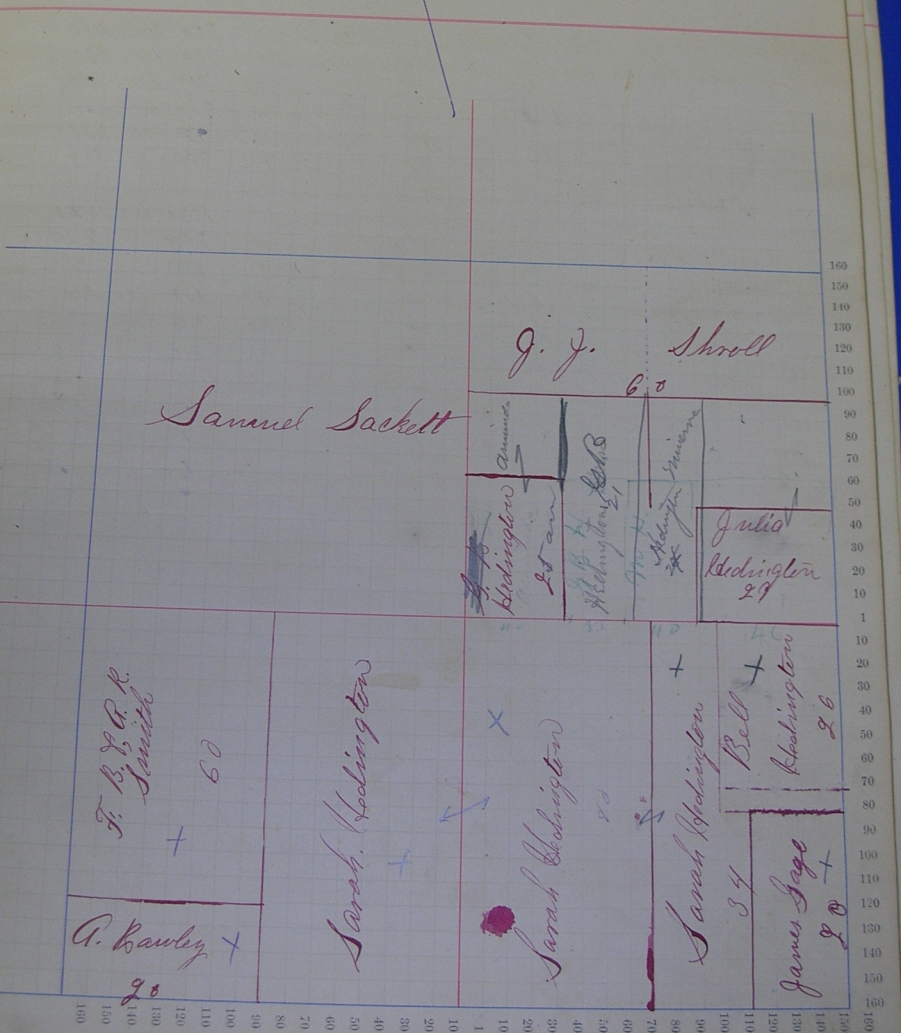 160
150
140
130
120
110
100
90
80
70
60
50
40
30
20
10
1
10
20
30
40
50
60
70
80
90
100
110
120
130
140
150
160
J. J. Shroll
60
Samuel Sackett
Hedington
25
Hedington
21
Hedington
Julia
Hedington
29
40
F. B. & A. R.
Smith
60
A. Bawley
20
Sarah Hedington
Sarah Hedington
80
Sarah Hedington
34
Bell
Hedington
26
James Gage
20
160 150 140 130 120 110 100 90 80 70 60 50 40 30 20 10 1 10 20 30 40 50 60 70 80 90 100 110 120 130 140 150 160